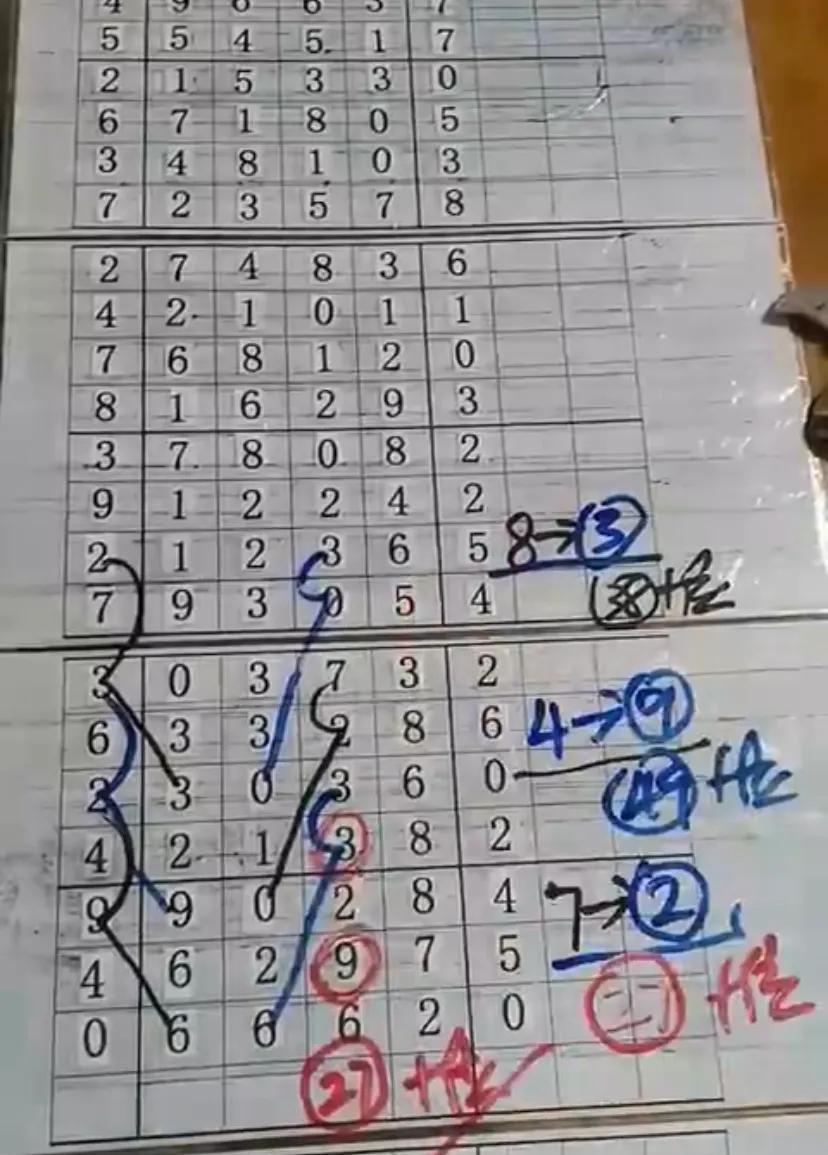 4 9 6 6 3 7
5 5 4 5 1 7
2 1 5 3 3 0
6 7 1 8 0 5
3 4 8 1 0 3
7 2 3 5 7 8
2 7 4 8 3 6
4 2 1 0 1 1
7 6 8 1 2 0
8 1 6 2 9 3
3 7 8 0 8 2
9 1 2 2 4 2
2 1 2 3 6 5 8→3
7 9 3 0 5 4 38 十位
3 0 3 7 3 2
6 3 3 2 8 6 4→9
2 3 0 3 6 0 49 十位
4 2 1 3 8 2
9 9 0 2 8 4 7→2
4 6 2 9 7 5 二7 十位
0 6 6 6 2 0
27 十位